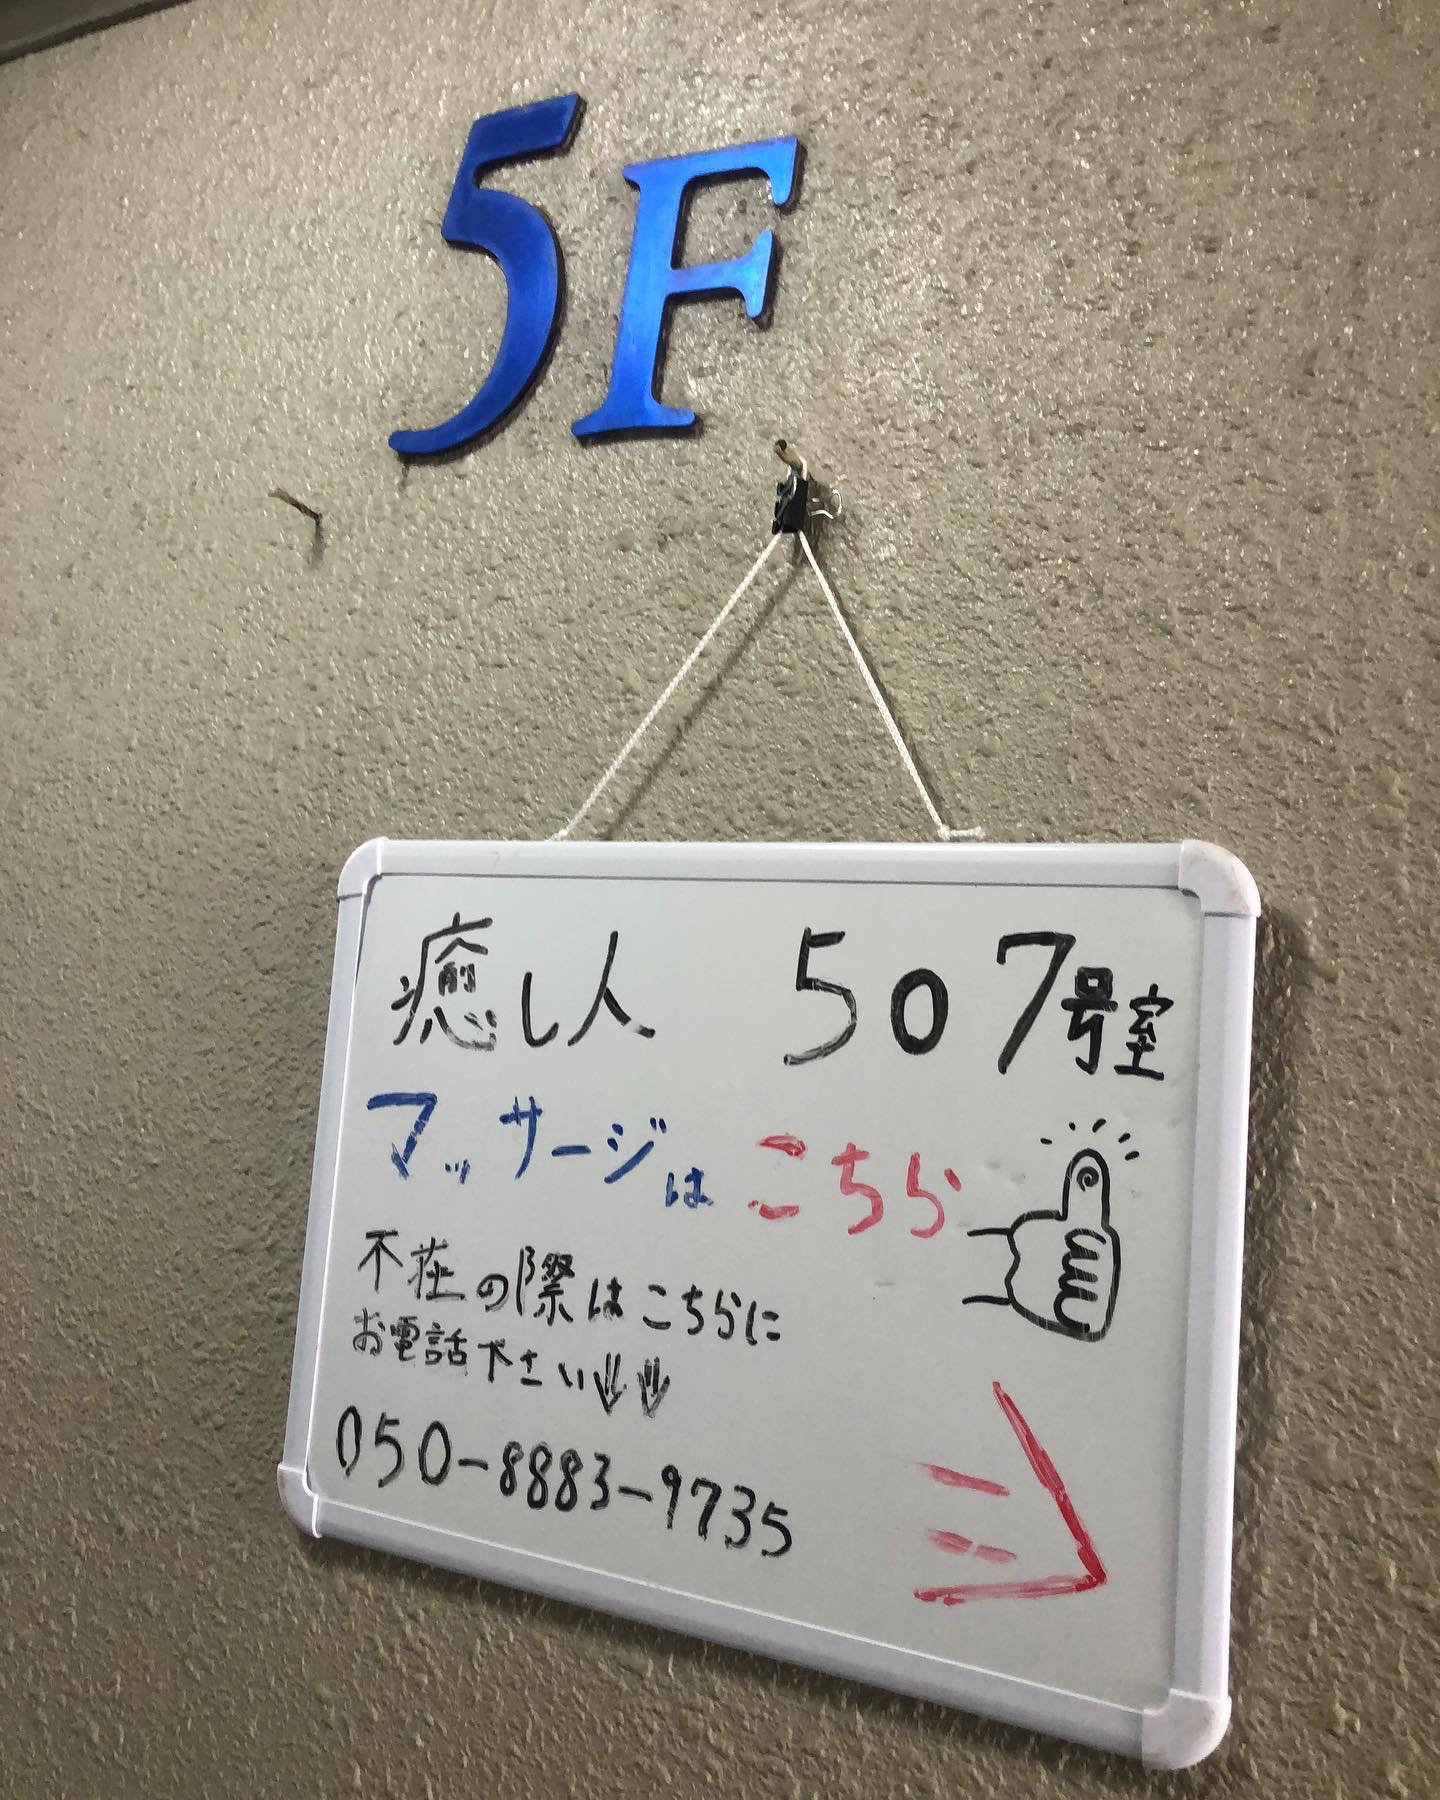 5F
癒し人 507号室
マッサージはこちら
不在の際はこちらに
お電話下さい⇓⇓
050-8883-9735